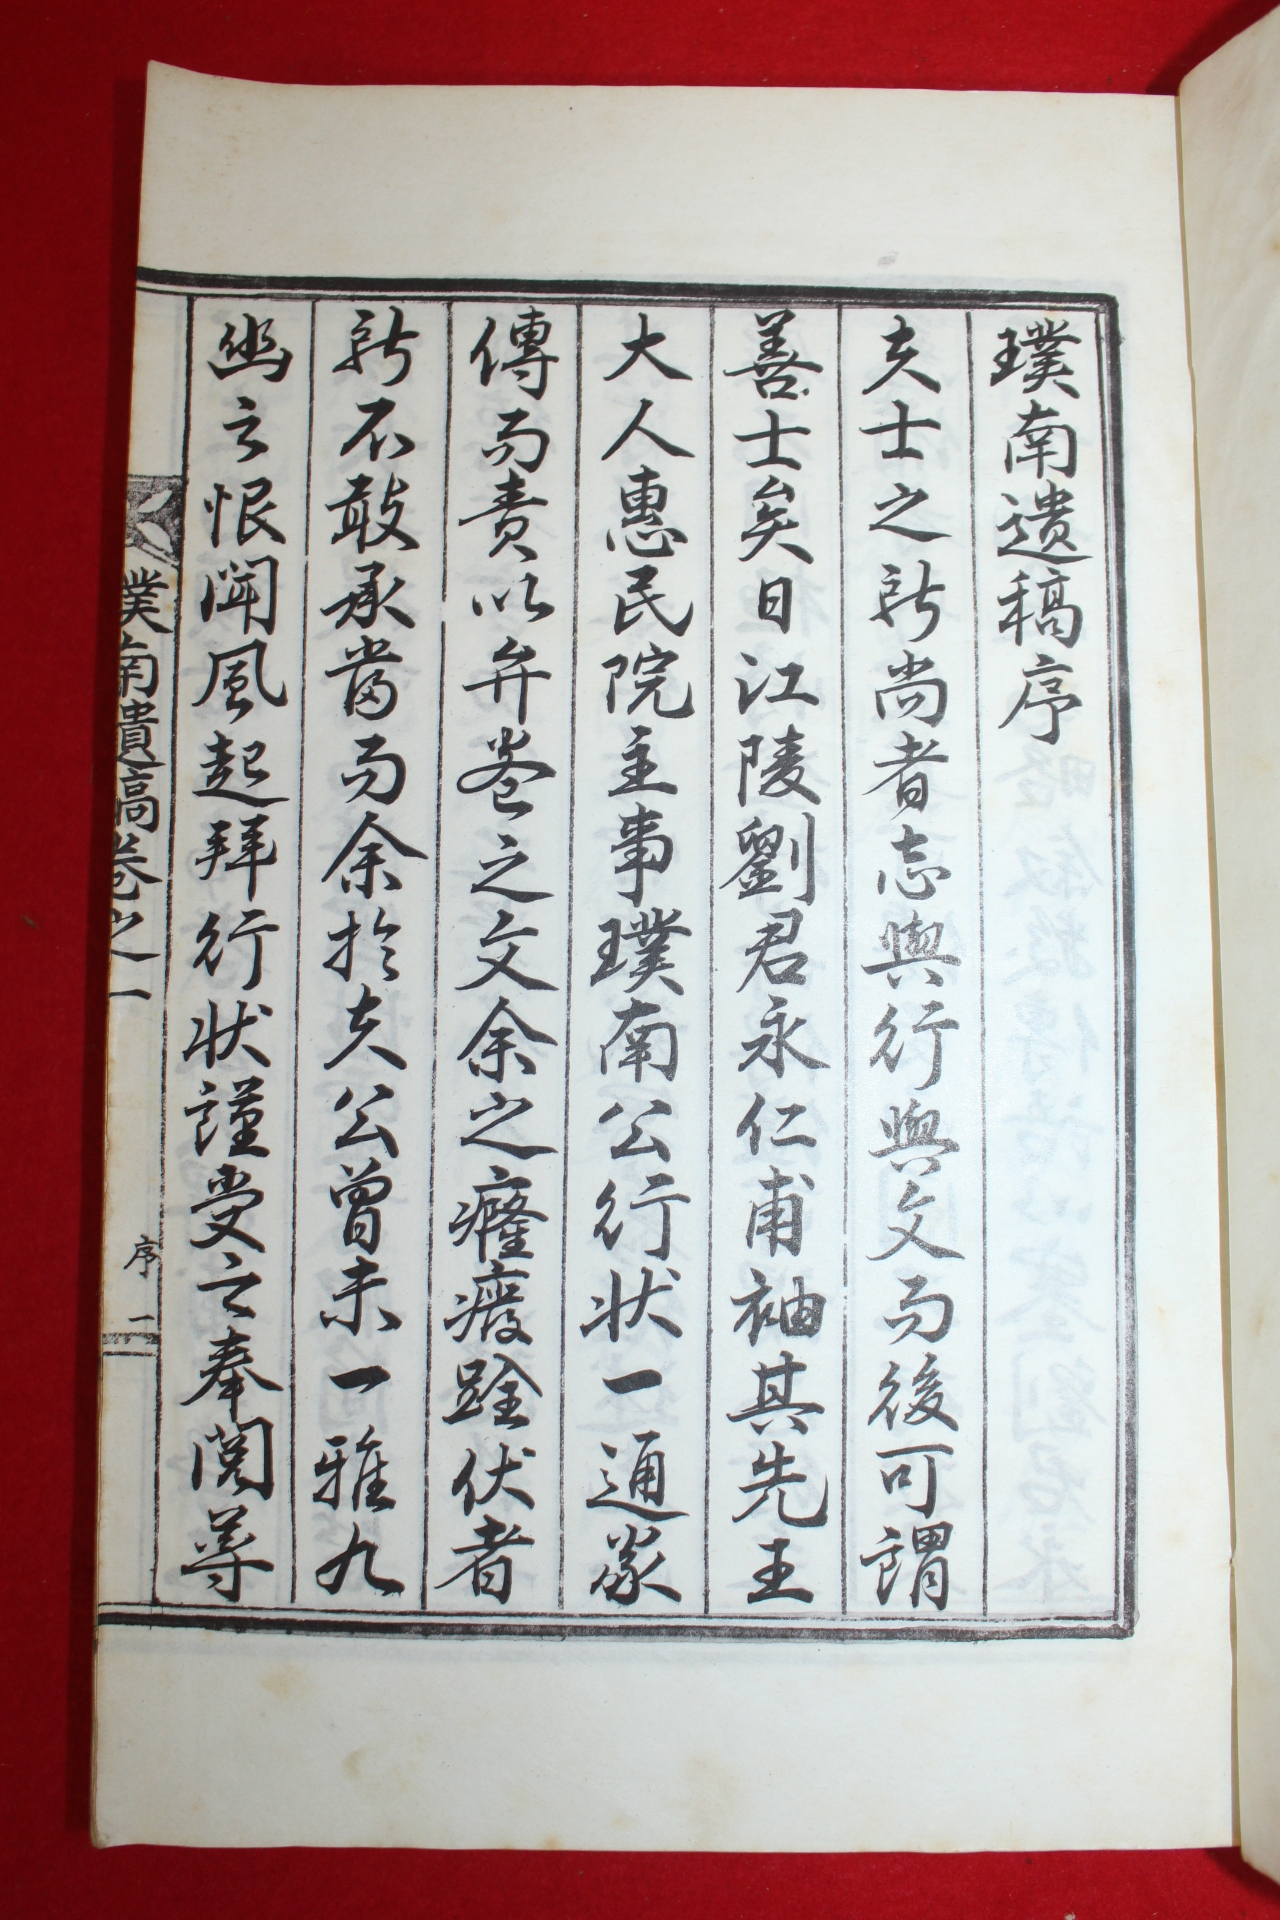 璞南遺稿序
夫士之所尚者志與行與文而後可謂
善士矣日江陵劉君永仁甫袖其先王
大人惠民院主事璞南公行狀一通家
傳而責以弁卷之文余之癃癈跧伏者
所不敢承當而余於夫公曾未一雅九
幽之恨聞風起拜行狀謹受之奉閱尊
璞南遺稿卷之一
序 一